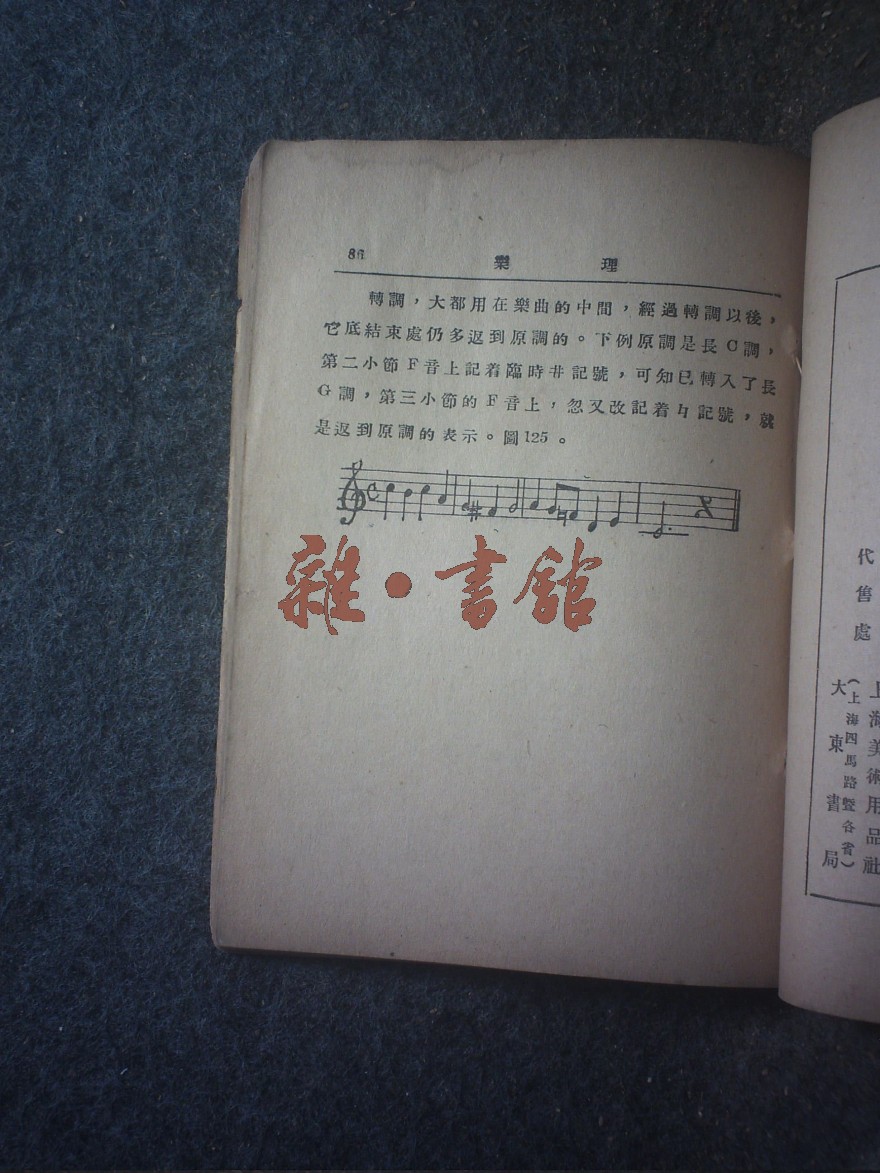 樂理
轉調，大都用在樂曲的中間，經過轉調以後，
它底結束處仍多返到原調的。下例原調是長C調，
第二小節F音上記着臨時♯記號，可知已轉入了長
G調，第三小節的F音上，忽又改記着♮記號，就
是返到原調的表示。圖125。
雜·書館
代售處
上海美術用品社
(上海四馬路暨各省)
大東書局